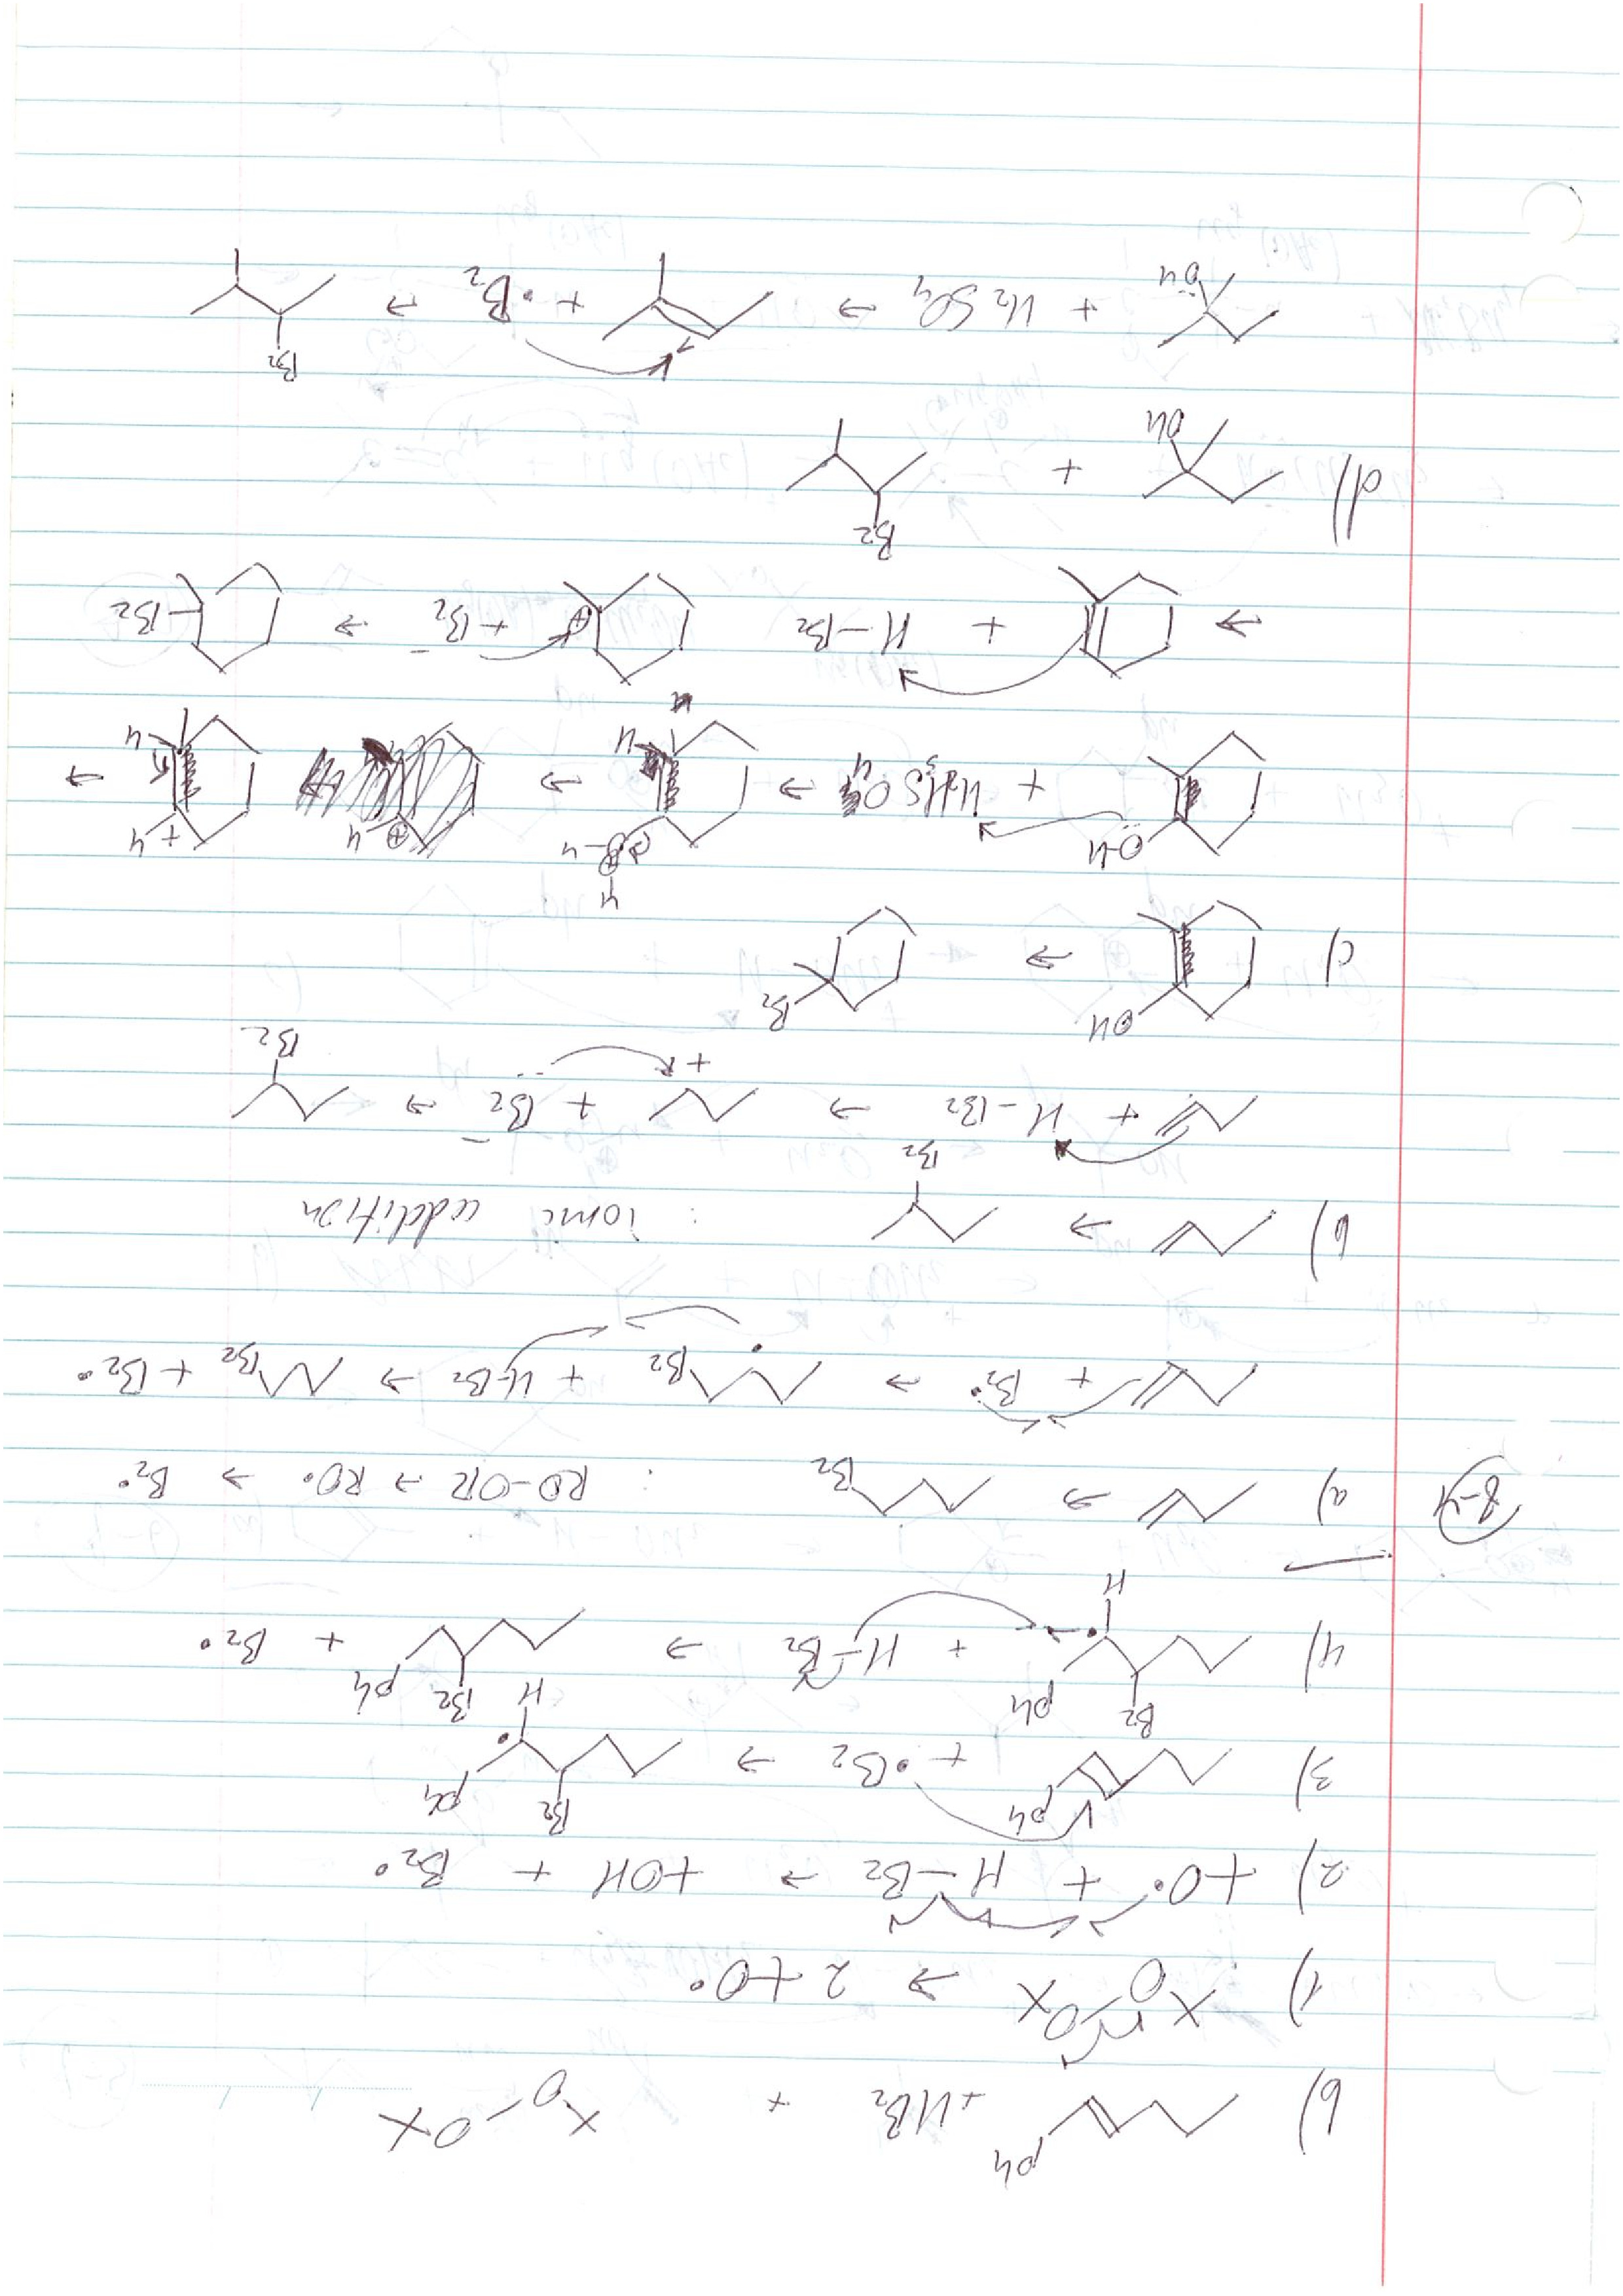 b) Ph + HBr + O-O
1) O-O → 2 +O•
2) +O• + H-Br → +OH + Br•
3) Ph + •Br → Br Ph H
4) Br Ph H + H-Br → Br Ph + Br•
8-4 a) → Br : RO-OR → RO• → Br•
+ Br• → Br + HBr → Br + Br•
b) → Br : ionic addition
+ H-Br → + + Br⁻ → Br
c) OH → Br
O-H + H₂SO₄ → O-H H H → + H H →
→ + H-Br ⊕ + Br⁻ → Br
d) OH + Br
OH + H₂SO₄ → + •Br → Br